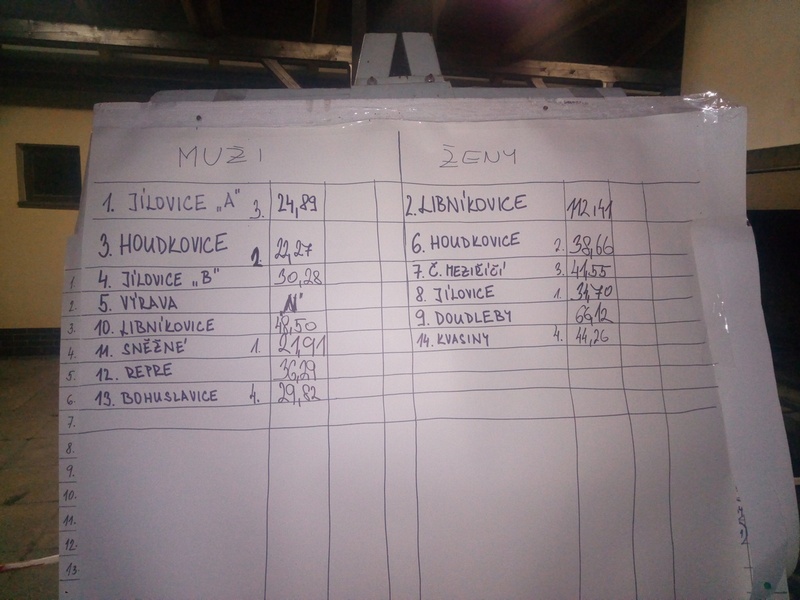 MUŽI
1. JÍLOVICE „A" 3. 24,89
3. HOUDKOVICE 2 22,27
4. JÍLOVICE „B" 30,28
5. VÝRAVA N
10. LIBNÍKOVICE 48,50
11. SNĚŽNÉ 1. 21,91
12. REPRE 36,29
13. BOHUSLAVICE 4. 29,82
ŽENY
2. LIBNÍKOVICE 112,41
6. HOUDKOVICE 2. 38,66
7. Č. MEZIŘÍČÍ 3. 41,55
8. JÍLOVICE 1. 31,70
9. DOUDLEBY 66,12
14. KVASINY 4. 44,26
1.
2.
3.
4.
5.
6.
7.
8.
9.
10.
11.
12.
13.